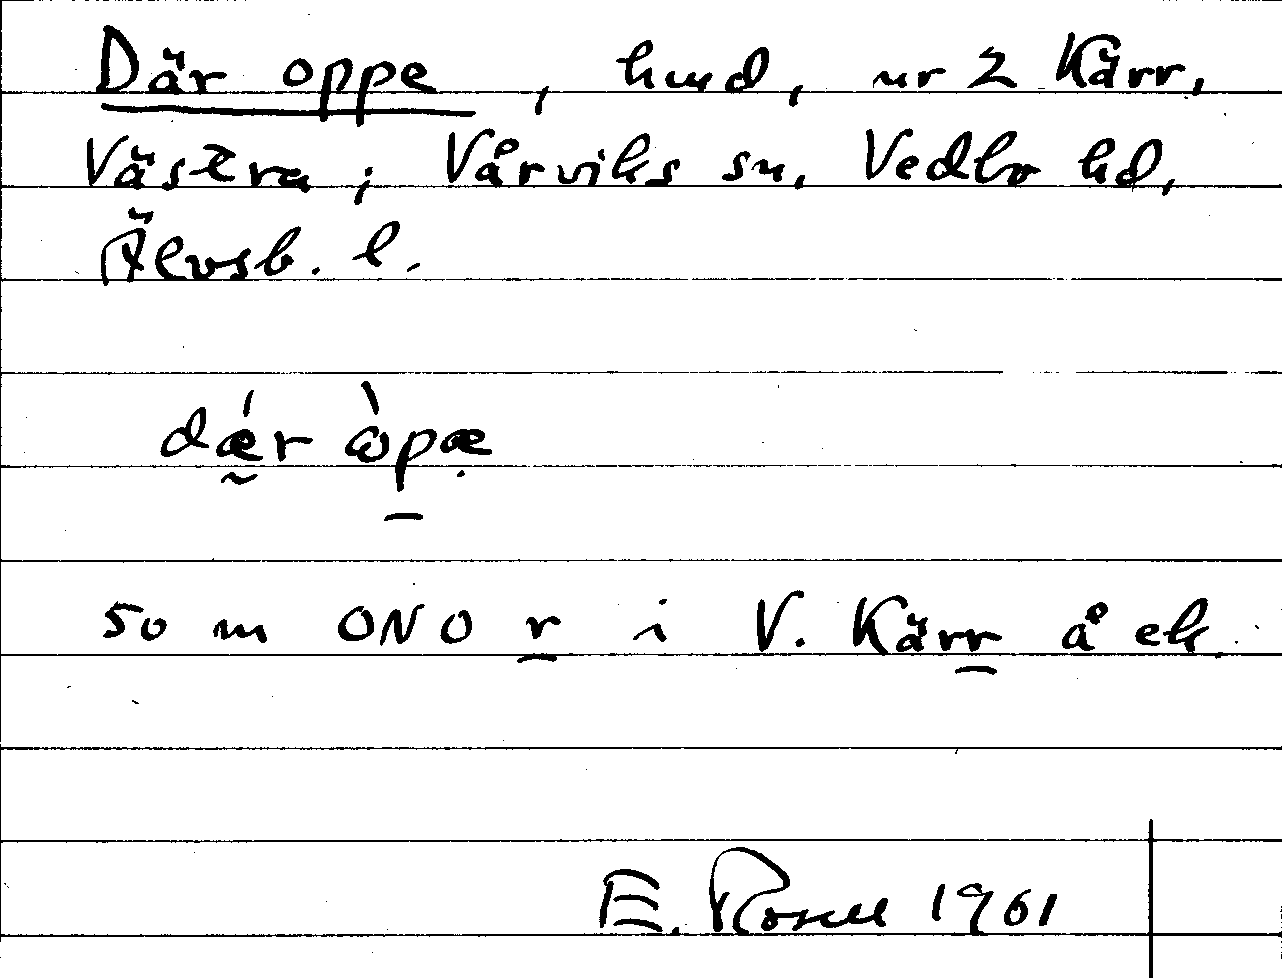 Där oppe, hmd, nr 2 Kärr,
Västra; Vårviks sn, Vedbo hd,
Älvsb. l.
dǽr ὼpæ
som ONO r i V. Kärr å ek.
E. Rosell 1961